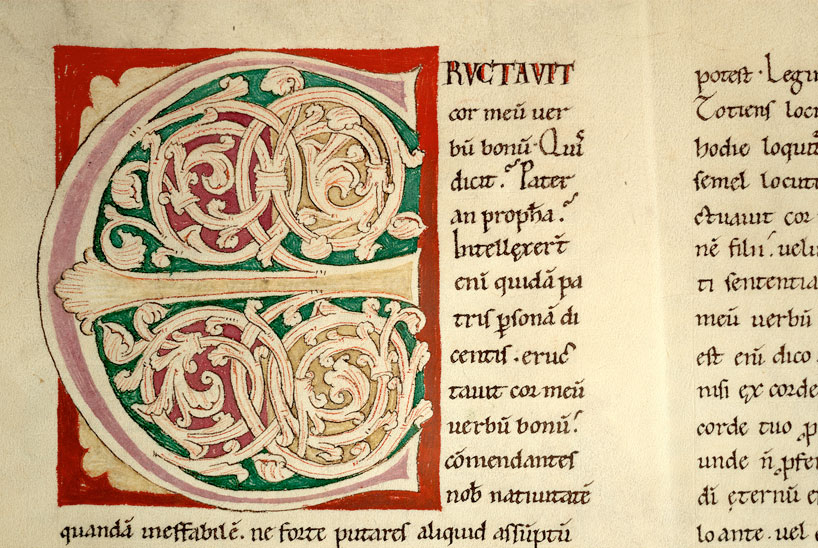 ERUCTAUIT
cor meū uer
bū bonū. Quis
dicit. Pater
an propħa.
Intellexer̄t
enī quidā pa
tris ꝑsonā di
centis. eruc̄
tauit cor meū
uerbū bonū.
cōmendantes
nob̄ natiuitatē
quandā ineffabilē. ne forte putares aliquid assūptū
potest. Legi
Totiens locu
hodie loquit
semel locut
ctauit cor
nē filii. uel
ti sententia
meū uerbū
est enī dico
nisi ex corde
corde tuo ꝓ
unde n̄ ꝓfe
di ęternū e
lo ante. uel